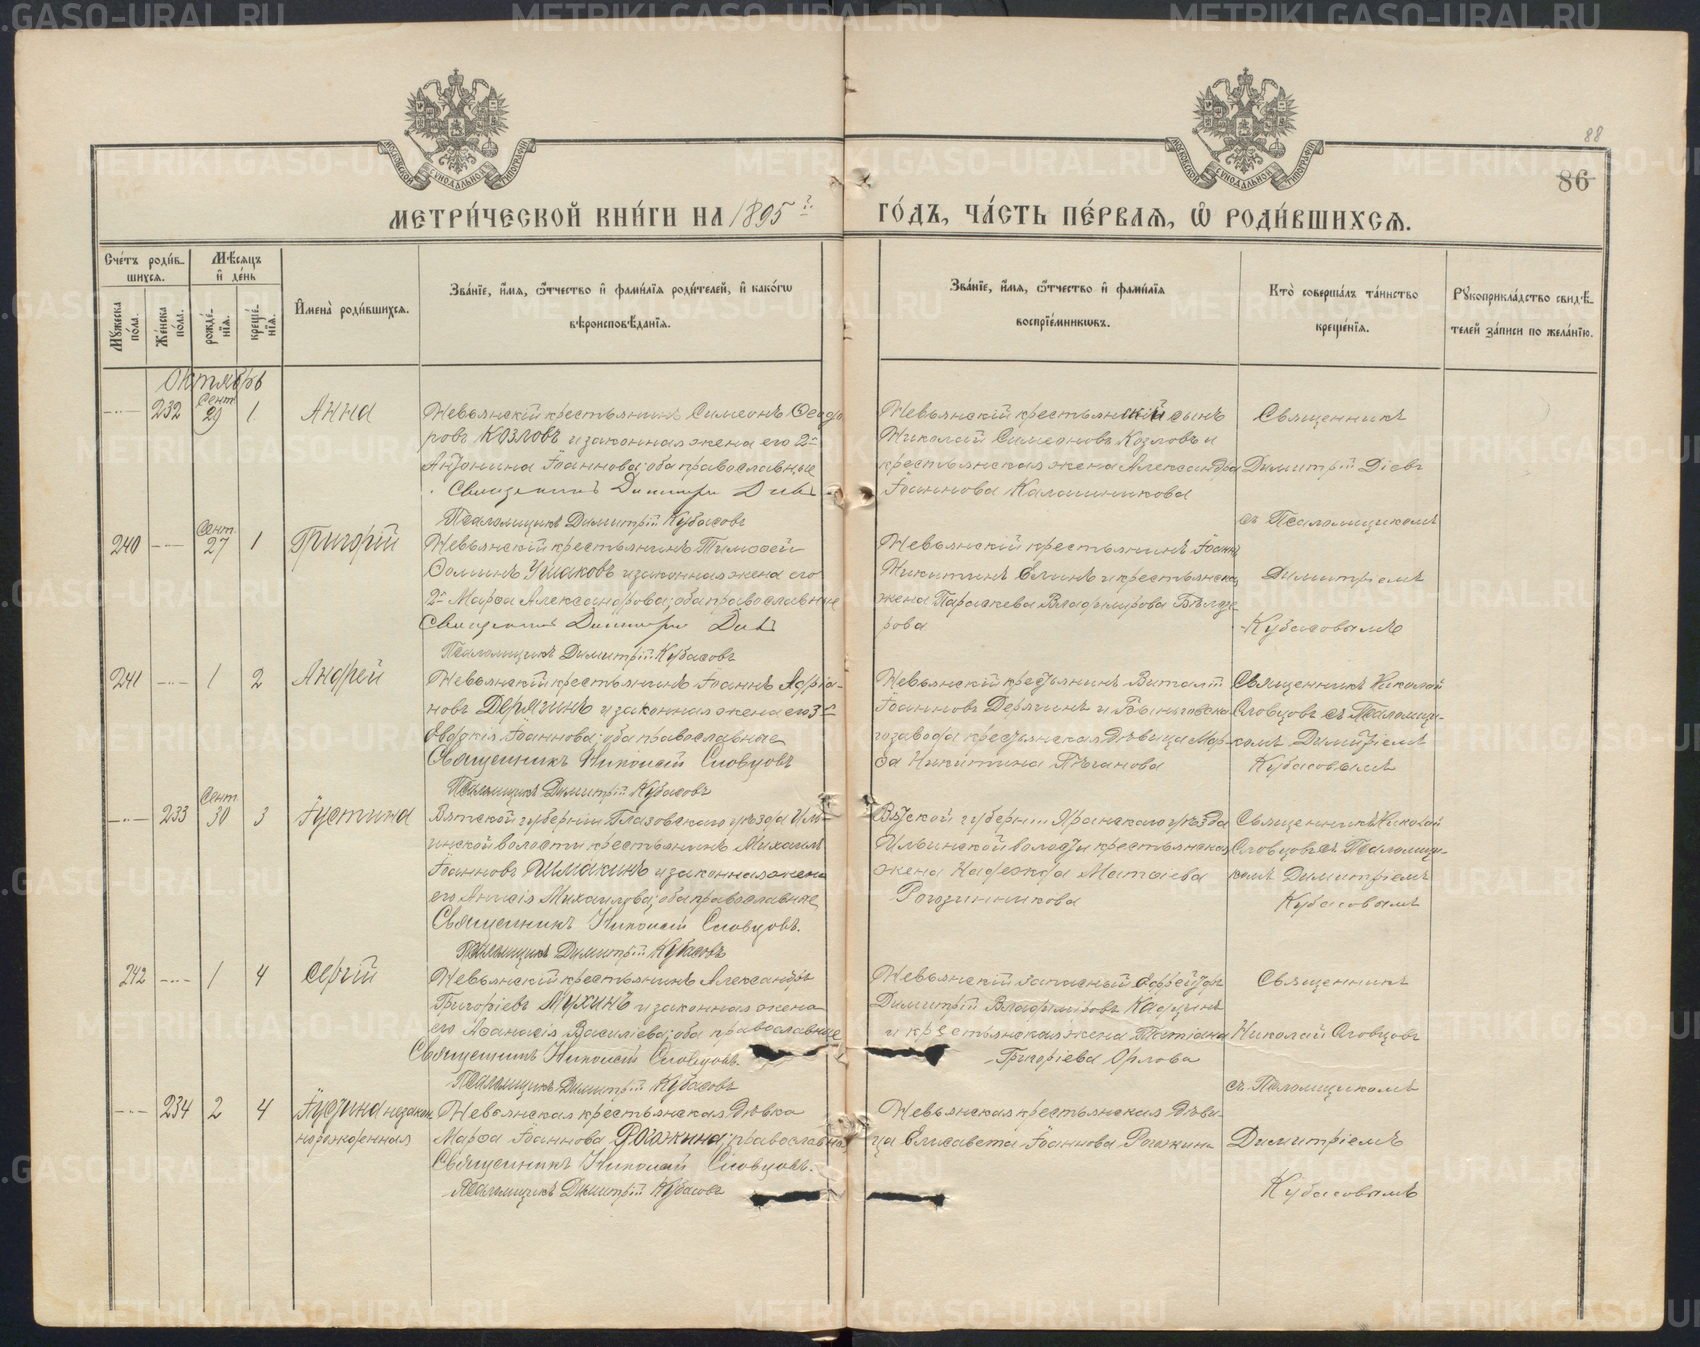 88
86
МЕТРИ́ЧЕСКОЙ КНИ́ГИ НА 1895 г.
ГО́ДЪ, ЧА́СТЬ ПЕ́РВАѦ, Ѽ РОДИ́ВШИХСѦ.
Сче́тъ роди́в-
шихся.
Мѣ́сяцъ
и де́нь
Му́жеска по́ла.
Же́нска по́ла.
рожде́-
нїя.
креще́-
нїя.
Имена̀ роди́вшихся.
Зва́нїе, и́мя, ѻ́тчество и фами́лїя роди́телей, и како́гѡ
вѣроисповѣ́данїя.
Зва́нїе, и́мя, ѻ́тчество и фами́лїя
воспрїе́мникѡвъ.
Кто̀ соверша́лъ та́инство
креще́нїя.
Рꙋкоприкла́дство свидѣ́-
телей за́писи по жела́нїю.
Октябрь
232 Сент. 29 1 Анна
Невьянскій крестьянинъ Симеонъ Ѳеодо
ровъ Козловъ и законная жена его 2я
Антонина Іоаннова; оба православные
Священникъ Димитрій Діевъ
Псаломщикъ Димитрій Кубасовъ
Невьянскій крестьянскій сынъ
Николай Симеоновъ Козловъ и
крестьянская жена Александра
Іоаннова Калашникова
Священникъ
Димитрій Діевъ
съ Псаломщикомъ
240 Сент. 27 1 Григорій
Невьянскій крестьянинъ Тимоѳей
Ѳоминъ Ушаковъ и законная жена его
2я Марѳа Александрова; оба православные
Священникъ Димитрій Діевъ
Псаломщикъ Димитрій Кубасовъ
Невьянскій крестьянинъ Іоаннъ
Никитинъ Елинъ и крестьянская
жена Параскева Владимирова
рова
Димитріемъ
Кубасовымъ
241 1 2 Андрей
Невьянскій крестьянинъ Іоаннъ Адріа-
новъ Дерягинъ и законная жена его 3я
Евдокія Іоаннова; оба православные
Священникъ Николай Словцовъ
Псаломщикъ Димитрій Кубасовъ
Невьянскій крестьянинъ Виталій
Іоанновъ Дерягинъ и
завода крестьянская дѣвица Мар-
ѳа Никитина
Священникъ Николай
Словцовъ съ Псаломщи-
комъ Димитріемъ
Кубасовымъ
233 Сент. 30 3 Іустина
Вятской губерніи Глазовскаго уѣзда
инской волости крестьянинъ Михаилъ
Іоанновъ Шмакинъ и законная жена
его Анисія Михаилова; оба православные
Священникъ Николай Словцовъ.
Псаломщикъ Димитрій Кубасовъ
Вятской губерніи Яранскаго уѣзда
Ильинской волости крестьянская
жена Надежда Матѳіева
Рогозинникова
Священникъ Николай
Словцовъ съ Псаломщи-
комъ Димитріемъ
Кубасовымъ
242 1 4 Сергій
Невьянскій крестьянинъ Александръ
Григоріевъ Мухинъ и законная жена
его Аѳанасія Василіева; оба православные
Священникъ Николай Словцовъ.
Псаломщикъ Димитрій Кубасовъ
Невьянскій запасный ефрейторъ
Димитрій Владиміровъ
и крестьянская жена Татіана
Григоріева Орлова
Священникъ
Николай Словцовъ
съ Псаломщикомъ
234 2 4 Іустина незакон
норожденная
Невьянская крестьянская дѣвка
Марѳа Іоаннова Рожкина; православная
Священникъ Николай Словцовъ.
Псаломщикъ Димитрій Кубасовъ
Невьянская крестьянская дѣви-
ца Елисавета Іоаннова Рожкина
Димитріемъ
Кубасовымъ
METRIKI.GASO-URAL.RU